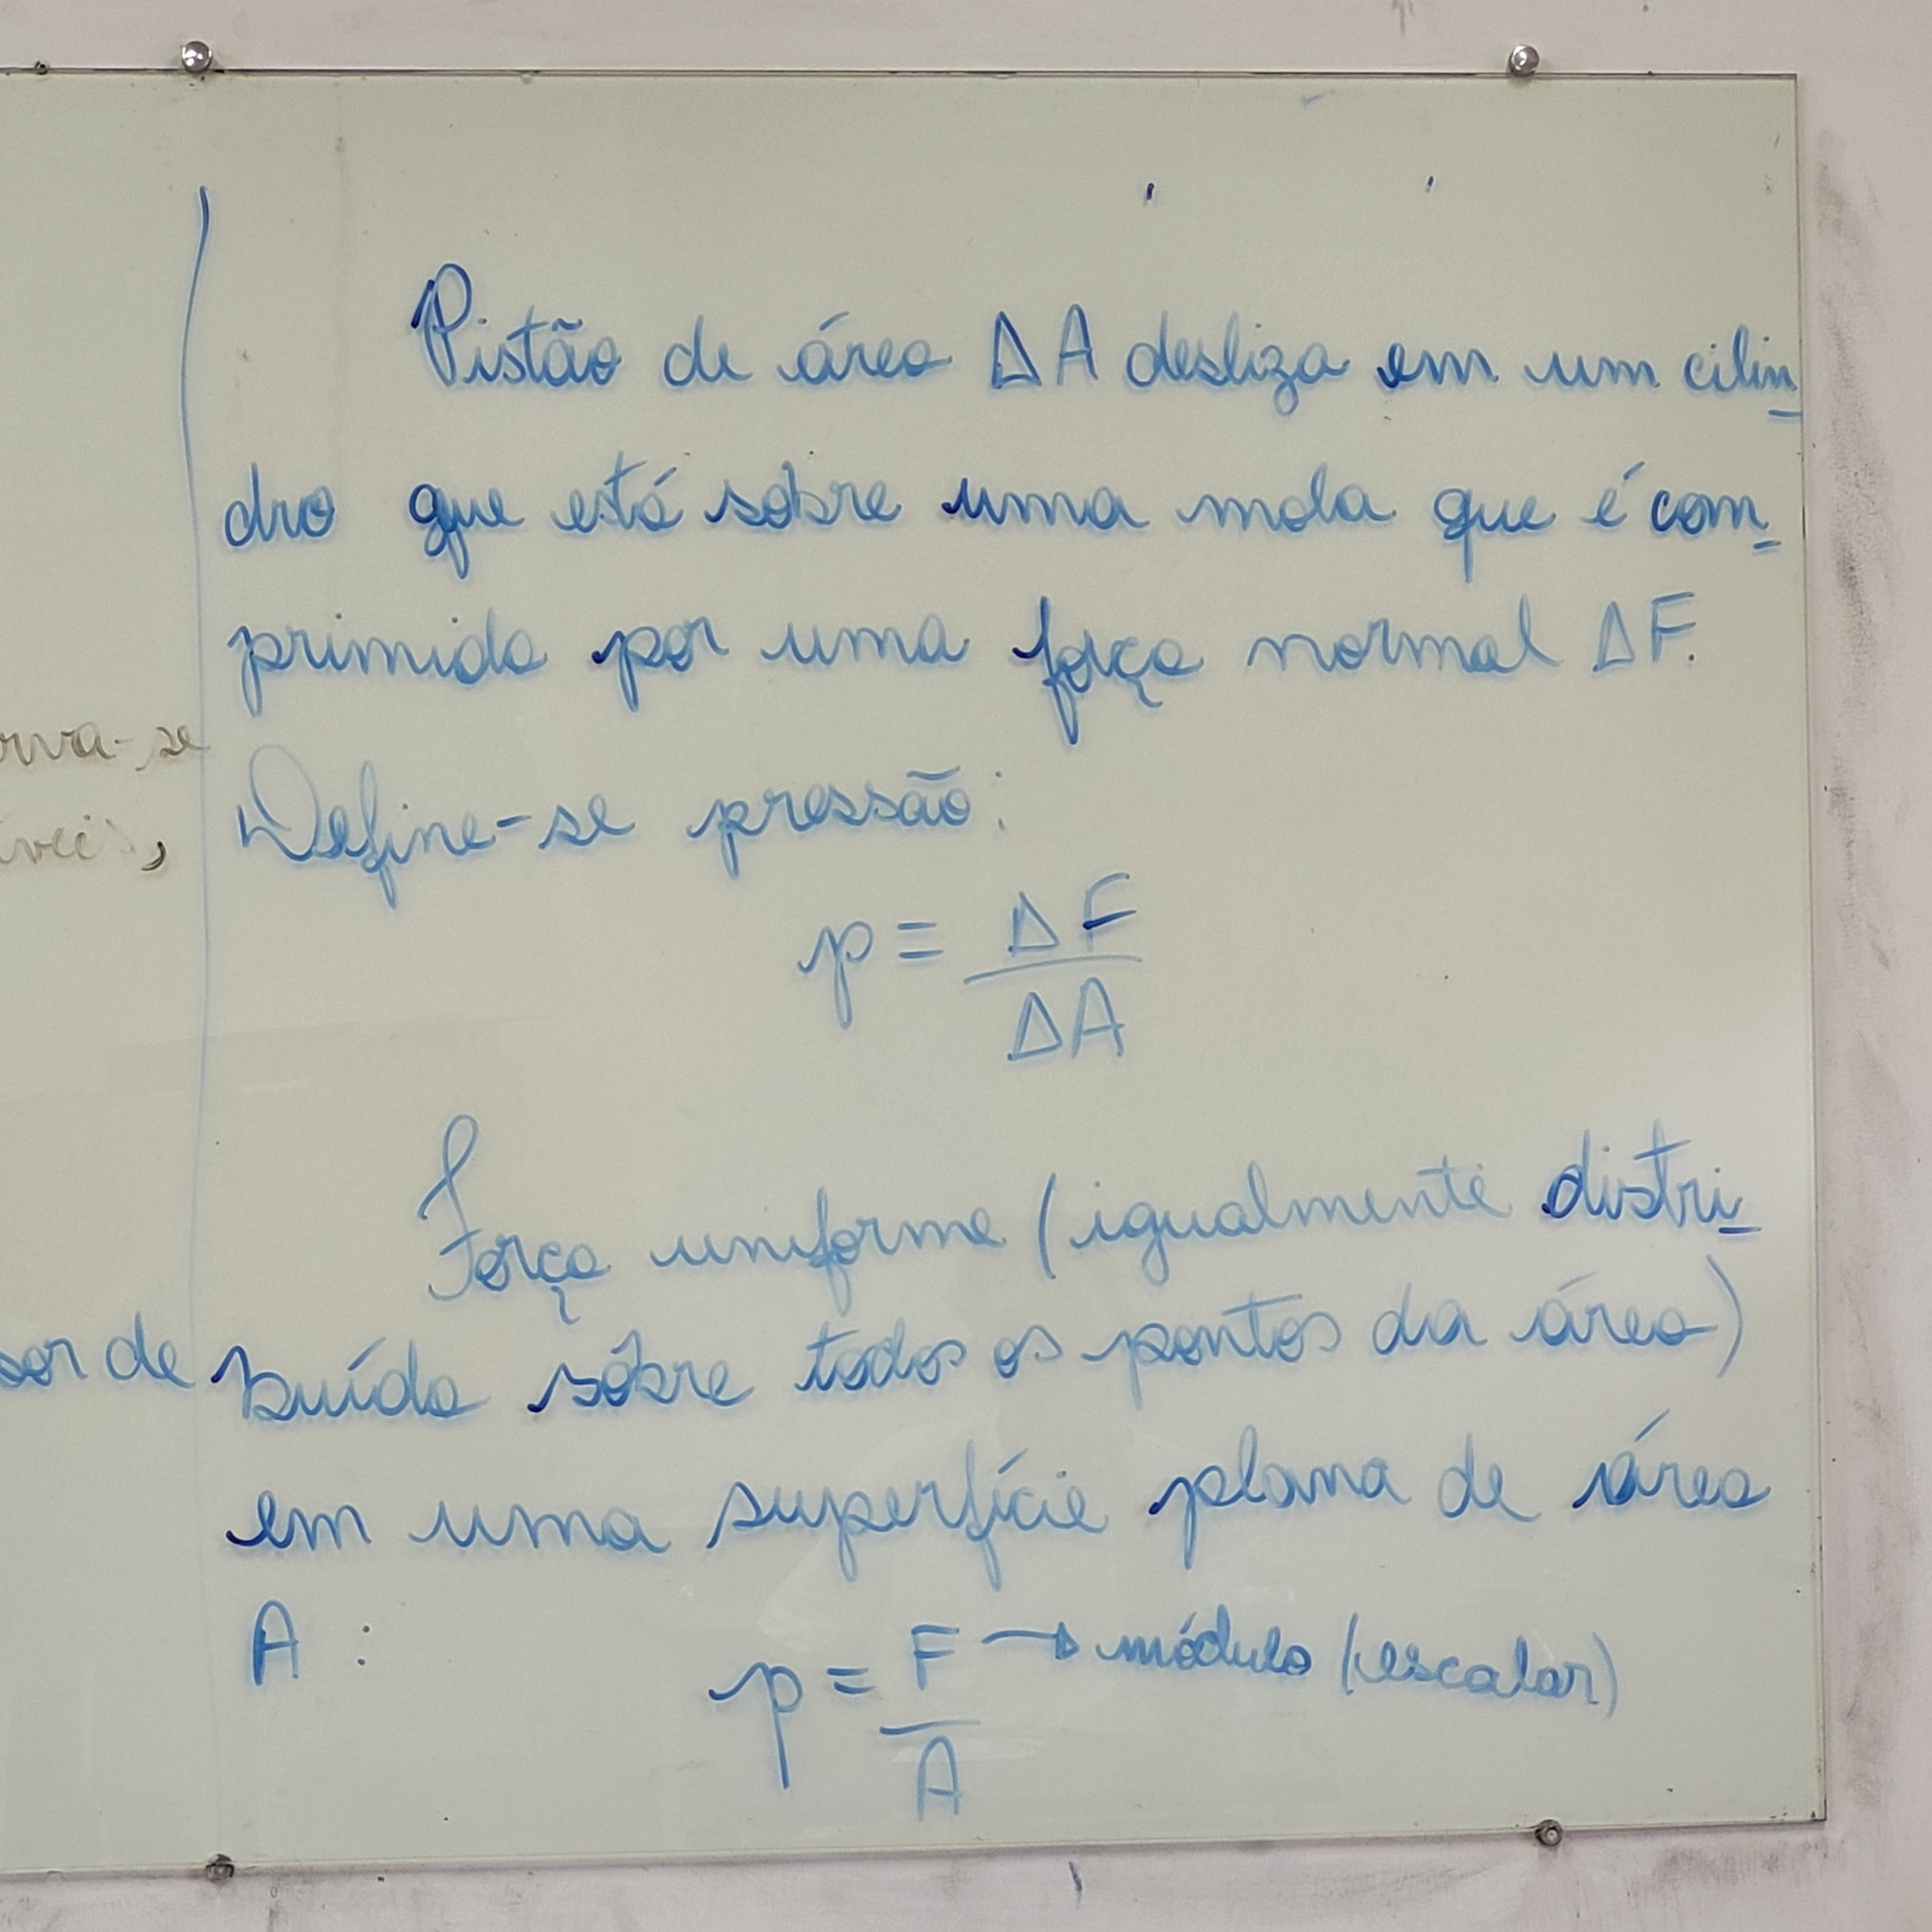 Pistão de área ΔA desliza em um cilin-
dro que está sobre uma mola que é com-
primida por uma força normal ΔF.
Define-se pressão:
p = ΔF
ΔA
Força uniforme (igualmente distri-
buída sobre todos os pontos da área)
em uma superfície plana de área
A :
p = F → módulo (escalar)
A